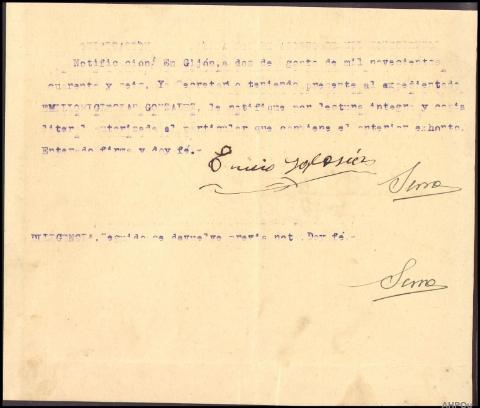 Notificion/ En Gijón,a dos de gosto de mil novecientos
cuarenta y seis. Yo Secretario teniendo presente al expedientado
EMILIO IGLESIAS GONZALEZ, le notifique por lectura integra y copia
liter l autorizada el particular que contiene el anterior exhorto.
Enterado firma y doy fé.-
Emilio Yglesias
Serra
DILIGENCIA. Seguido se devuelve previa not . Doy fé.-
Serra
AHPOu